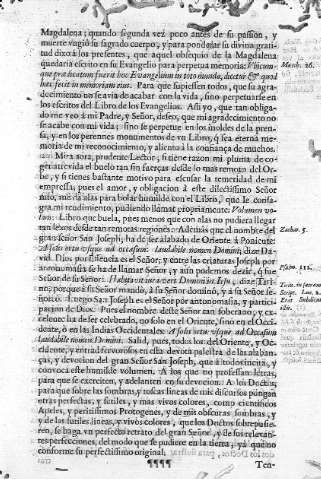 Magdalena; quando segunda vez poco antes de su passion, y
muerte vngiò su sagrado cuerpo, y para ponderar su divina grati-
tud dixo à los presentes, que aquel obsequio de la Magdalena
quedaria escrito en su Evangelio para perpetua memoria: Vbicum-
que prædicatum fuerit hoc Evangelium in toto mundo, dicetur & quod
hæc fecit in memoriam eius. Para que supiessen todos, que su agra-
decimiento no se avia de acabar con la vida, sino perpetuarse en
los escritos del Libro de los Evangelios. Assi yo, que tan obliga-
do me veo à mi Padre, y Señor, deseo, que mi agradecimiento no
se acabe con mi vida; sino se perpetue en los moldes de la pren-
sa, y en los perennes monumentos de vn Libro, q̃ sea eterna me-
moria de mi reconocimiento, y aliento à la confiança de muchos.
Mira aora, prudente Lector, si tiene razon mi pluma de co-
ger atrevida el buelo tan sin fuerças desde lo mas remoto del Or-
be, y si tienes bastante motivo para escusar la temeridad de mi
empressa; pues el amor, y obligacion à este dilectissimo Señor
mio, me dà alas para bolar humilde con el Libro, que le consa-
gra mi rendimiento, pudiendo llamar propriamente: Volumen vo-
lans: Libro que buela, pues menos que con alas no pudiera llegar
tan lexos desde tan remotas regiones. Ademàs que el nombre del
gran Señor San Joseph, ha de ser alabado de Oriente à Poniente:
A solis ortu vsque ad occasum laudabile nomen Domini, dize Da-
vid. Dios por essencia es el Señor; y entre las criaturas Joseph por
antonomasia se ha de llamar Señor; y aun podemos dezir, q̃ fue
Señor de su Señor.
mo; porque à su Señor mandò, à su Señor dominò, y à su Señor se-
ñoreò. Luego San Joseph es el Señor por antonomasia, y partici-
pacion de Dios. Pues el nombre deste Señor tan soberano, y ex-
celente ha de ser celebrado, no solo en el Oriente, sino en el Occi-
dente, ò en las Indias Occidentales: A solis ortu vsque ad Occasum
laudabile nomen Domini. Salid, pues, todos los del Oriente, y Oc-
cidente, y entrad fervorosos en esta devota palestra de las alaban-
ças, y devocion del gran Señor San Joseph, que à todos incita, y
convoca este humilde volumen. A los que no professan letras,
para que se exerciten, y adelanten en su devocion. A los Doctos,
para que sobre las sombras, y toscas lineas de mis discursos pongan
otras perfectas, y sutiles, y mas vivos colores, como cientificos
Apeles, y peritissimos Protogenes, y de mis obscuras sombras, y
y de las sutiles lineas, y vivos colores, que los Doctos sobrepusie-
ren, se haga vn perfecto retrato del gran Señor, y de sus relevan-
tes perfecciones, del modo que se pudiere en la tierra, yà que no
conforme su perfectissimo original.
¶¶¶¶ Ten-
Math. 26.
Zachar. 5.
Psalm. 112.